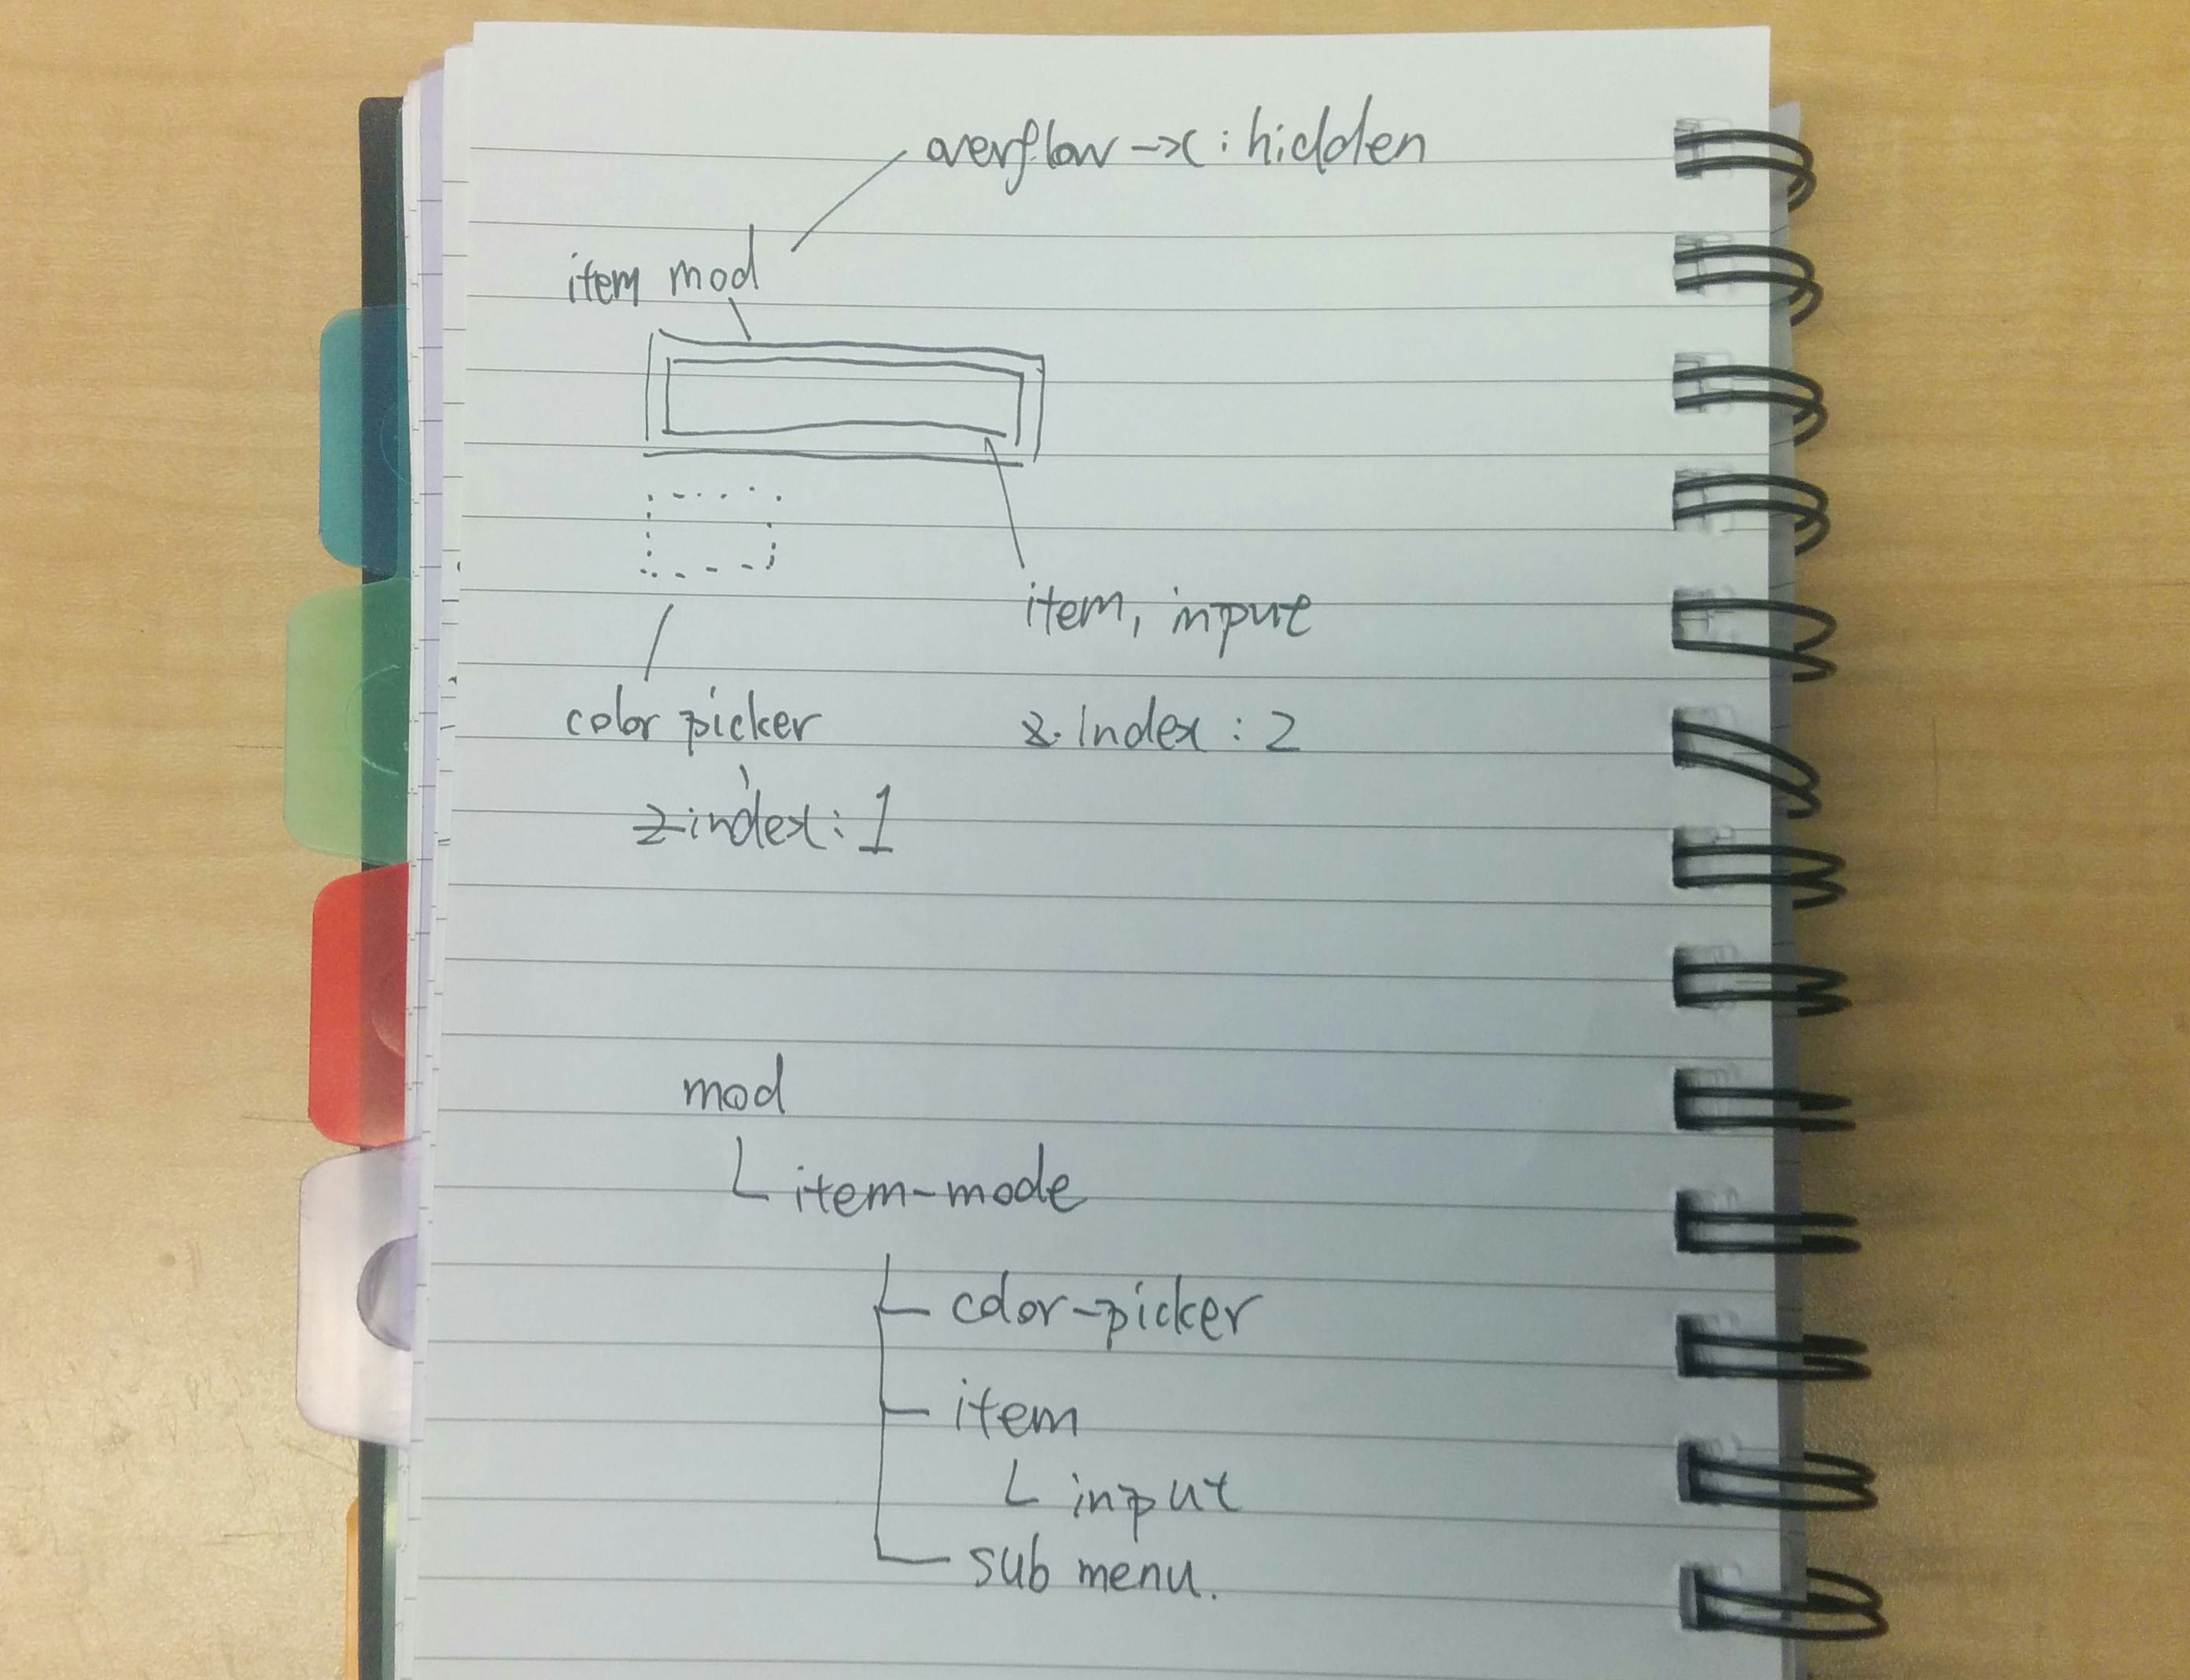 overflow-x : hidden
item mod
item, input
color picker
z-Index : 2
z-index : 1
mod
item-mode
color-picker
item
input
sub menu.